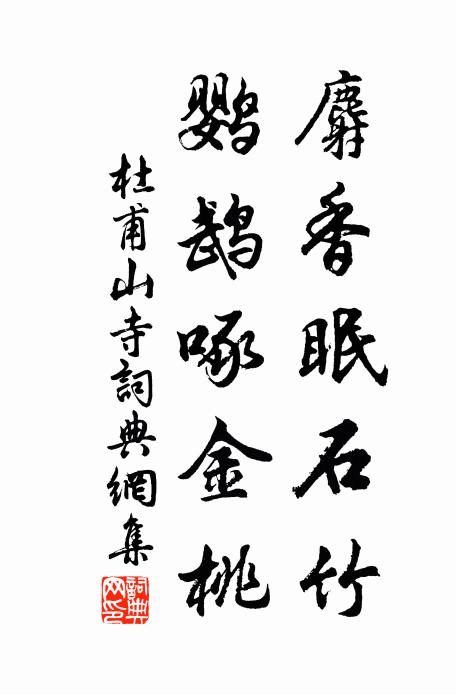 麝香眠石竹
鸚鵡啄金桃
杜甫山寺詞典網集
詞典網印